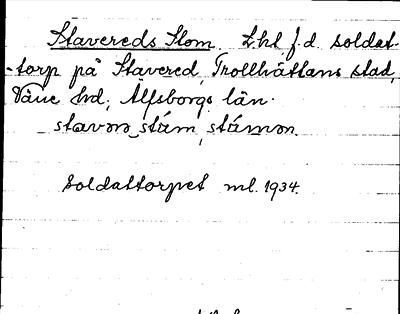 Stavereds Stom. Lht f.d. soldat-
-torp på Stavered, Trollhättans stad,
Väne hd, Älfsborgs län.
stavərə stám, stámən.
Soldattorpet ml. 1934.